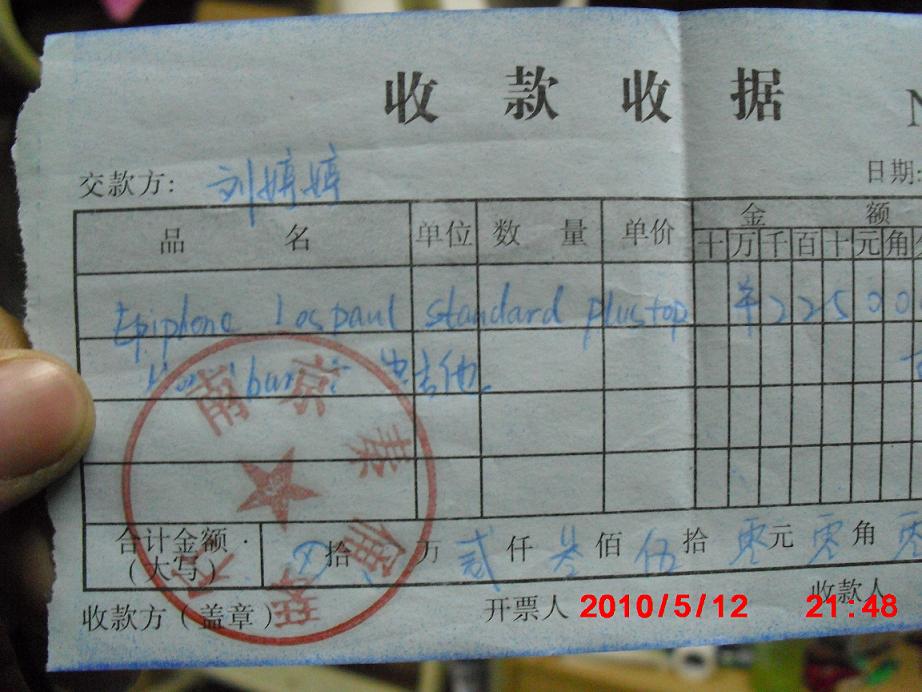 收款收据 N
交款方: 刘婷婷 日期:
品名 单位 数量 单价 金额
十 万 千 百 十 元 角
Epiphone lespaul standard plustop ¥22500
吉他
合计金额 拾 万 贰 仟 叁 佰 伍 拾 零 元 零 角 零
(大写)
收款方(盖章) 开票人 收款人
2010/5/12 21:48
南京秦